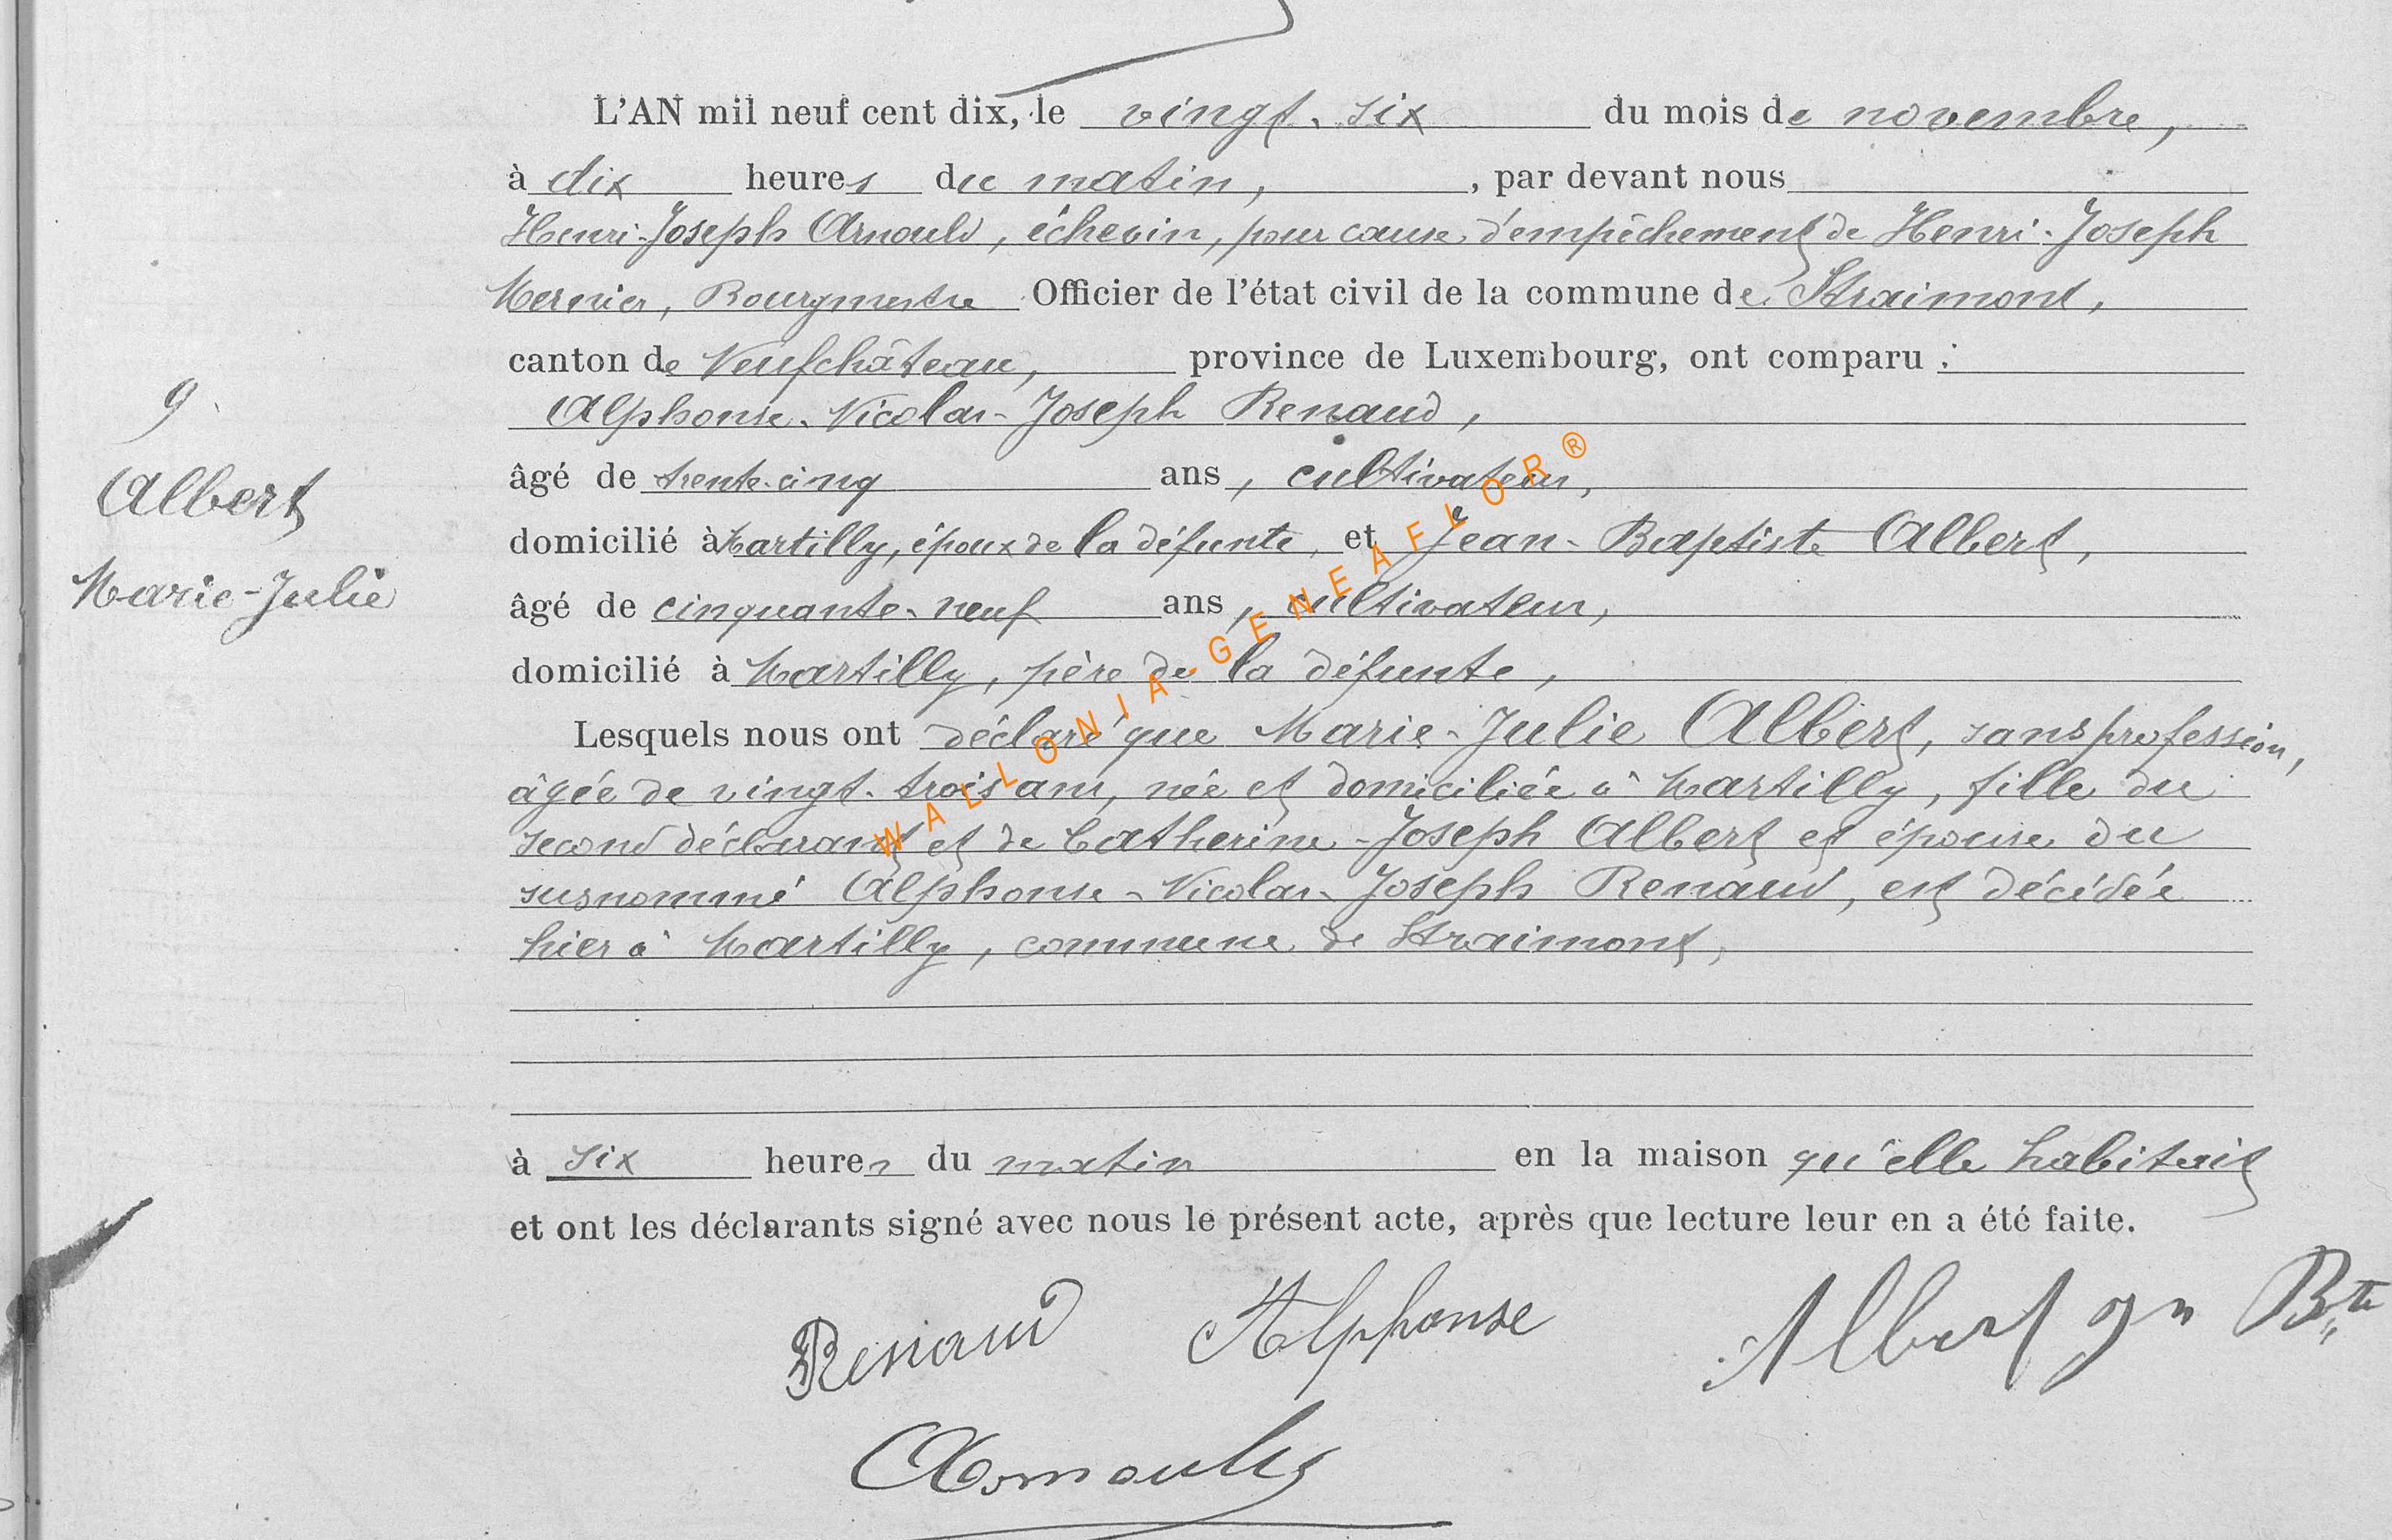 L'AN mil neuf cent dix, le vingt-six du mois de novembre,
à dix heures du matin, , par devant nous
Henri-Joseph Arnould, échevin, pour cause d'empêchement de Henri-Joseph
Mernier, Bourgmestre Officier de l'état civil de la commune de Straimont,
canton de Neufchâteau, province de Luxembourg, ont comparu :
Alphonse-Nicolas-Joseph Renaud,
âgé de trente-cinq ans, cultivateur,
domicilié à Martilly, époux de la défunte, et Jean-Baptiste Albert,
âgé de cinquante-neuf ans, cultivateur,
domicilié à Martilly, père de la défunte,
Lesquels nous ont déclaré que Marie-Julie Albert, sans profession,
âgée de vingt-trois ans, née et domiciliée à Martilly, fille du
second déclarant et de Catherine-Joseph Albert et épouse du
susnommé Alphonse-Nicolas-Joseph Renaud, est décédée
hier à Martilly, commune de Straimont,
à six heures du matin en la maison qu'elle habitait
et ont les déclarants signé avec nous le présent acte, après que lecture leur en a été faite.
Renaud Alphonse Albert Jn Bte
Arnould
9.
Albert
Marie-Julie
WALLONIA-GENEAFLOR®